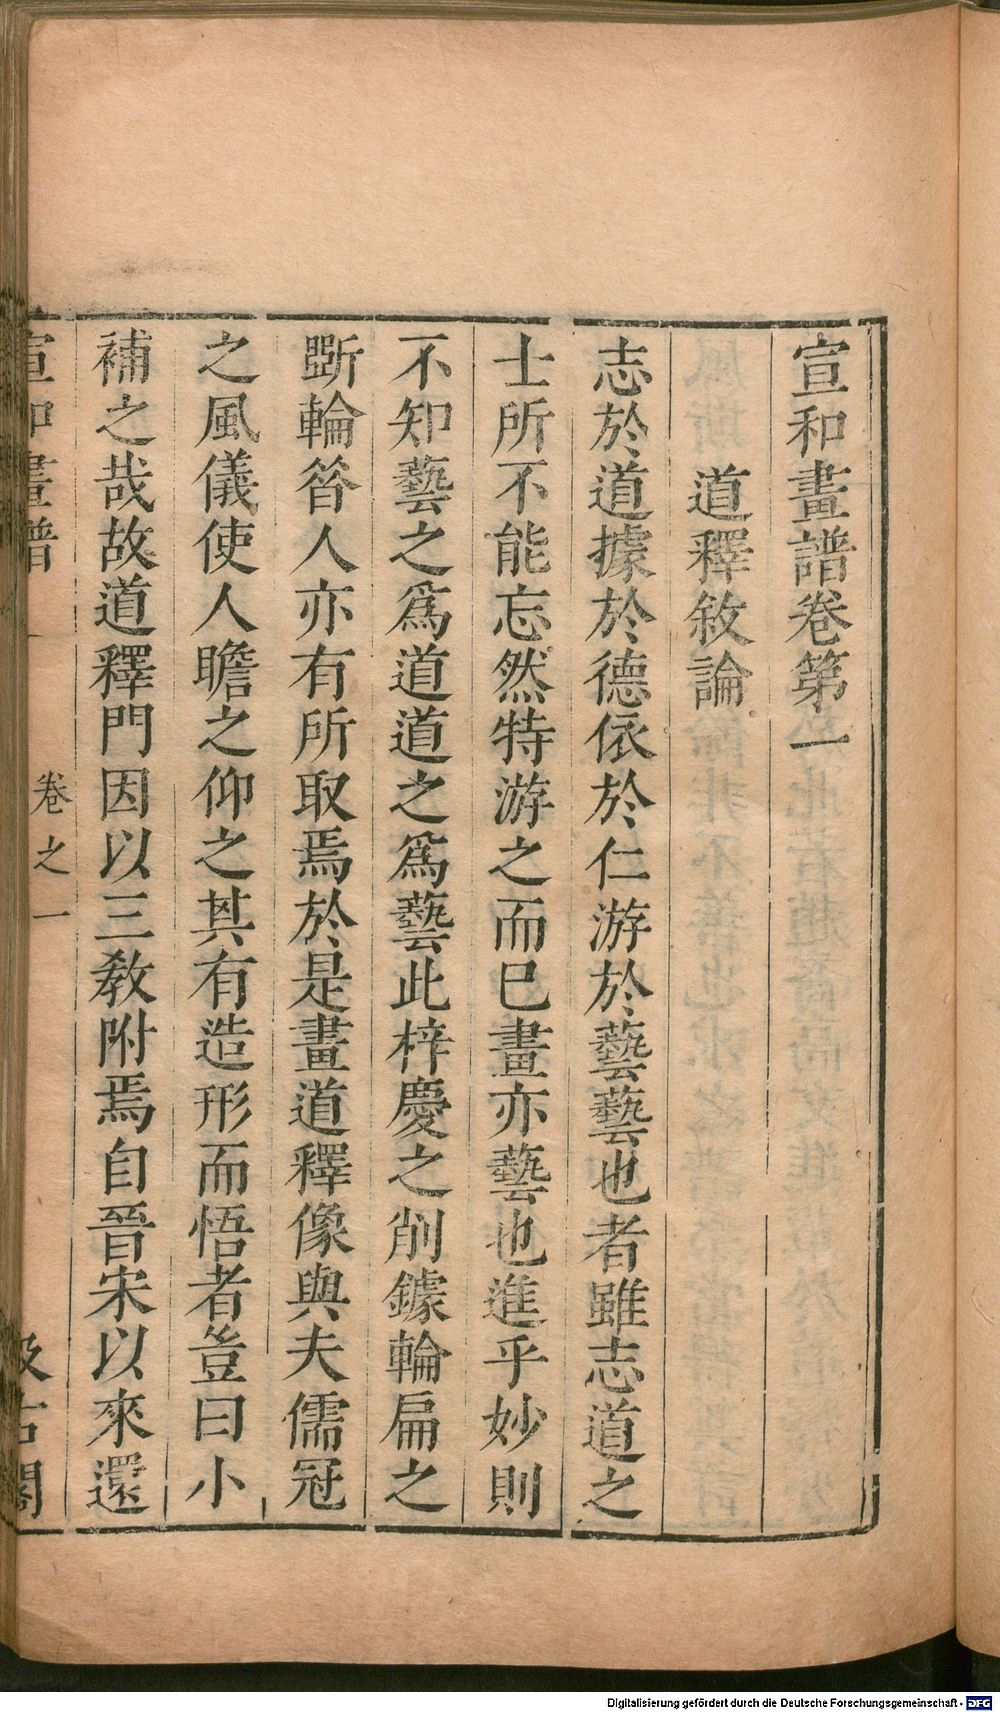 宣和畫譜卷第一
道釋敘論
志於道據於德依於仁游於藝藝也者雖志道之
士所不能忘然特游之而巳畫亦藝也進乎妙則
不知藝之爲道道之爲藝此梓慶之削鐻輪扁之
斲輪昝人亦有所取焉於是畫道釋像與夫儒冠
之風儀使人瞻之仰之其有造形而悟者豈曰小
補之哉故道釋門因以三敎附焉自晉宋以來還
宣和畫譜 卷之一 汲古閣
Digitalisierung gefördert durch die Deutsche Forschungsgemeinschaft - DFG